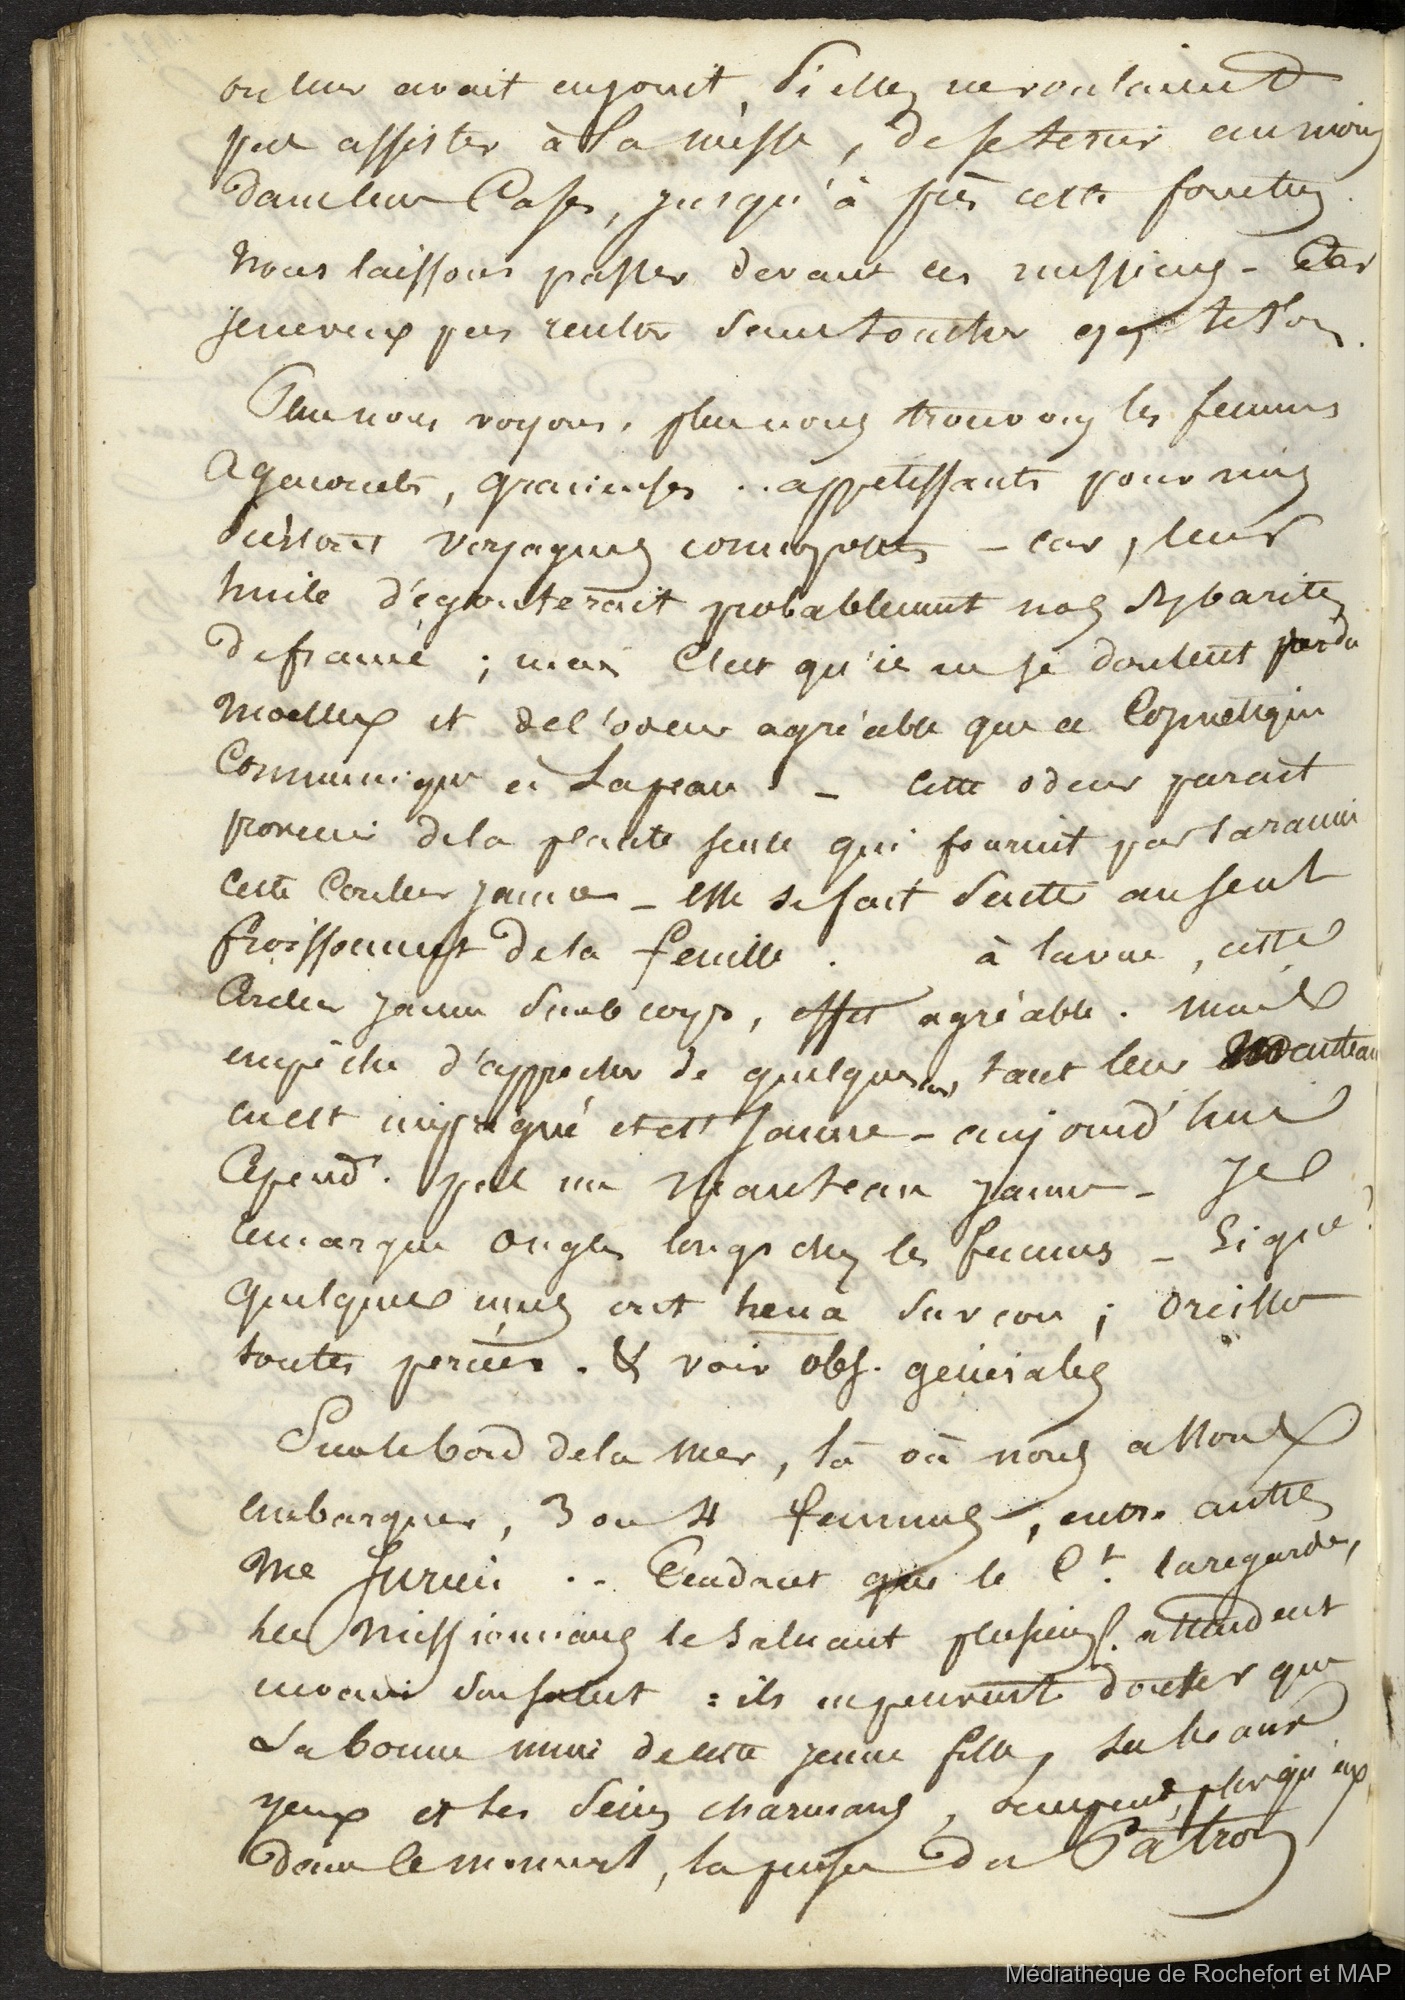 on leur avait enjoint, si elles ne voulaient
pas assister à la messe, de se tenir au moins
dans leur Case, jusqu'à près cette fonction.
Nous laissons passer devant ces messieurs - Car
je ne veux pas rentrer sans toucher qq teton.
Plus nous voyons, plus nous trouvons les femmes
agaçantes, gracieuses .. appetissantes pour nous
voyageurs - car, leur
huile dégouterait probablement nos Sybarites
de france ; mais C'est qu'ils ne se doutent pas du
moelleux et de l'odeur agréable que ce Cosmétique
Communique à La peau. - Cette odeur parait
provenir de la plante seule qui fournit par sa racine
cette Couleur jaune - elle se fait sentir au seul
froissement de la feuille. à la vue, cette
Couleur jaune sur le corps, effet agréable. mais
empêche d'approcher de quelques unes tant leur manteau
en est imprégné et est jaune - aujourd'hui
Cepend.t pas un Manteau jaune - Je
remarque ongles longs chez les femmes - Signe ?
quelques unes ont heua sur cou ; oreilles
toutes percées. & voir obs. générales
Sur le bord de la mer, là où nous allons
embarquer, 3 ou 4 femmes, entre autres
Me .. Pendant que le C.t la regarde,
les Missionnaires le saluant plusieurs f. attendent
en vain son salut : ils ne peuvent douter que
La bonne mine de cette jeune fille, ses beaux
yeux et ses seins charmans, occupent plus qu'eux
dans le moment, la pensée du Patron